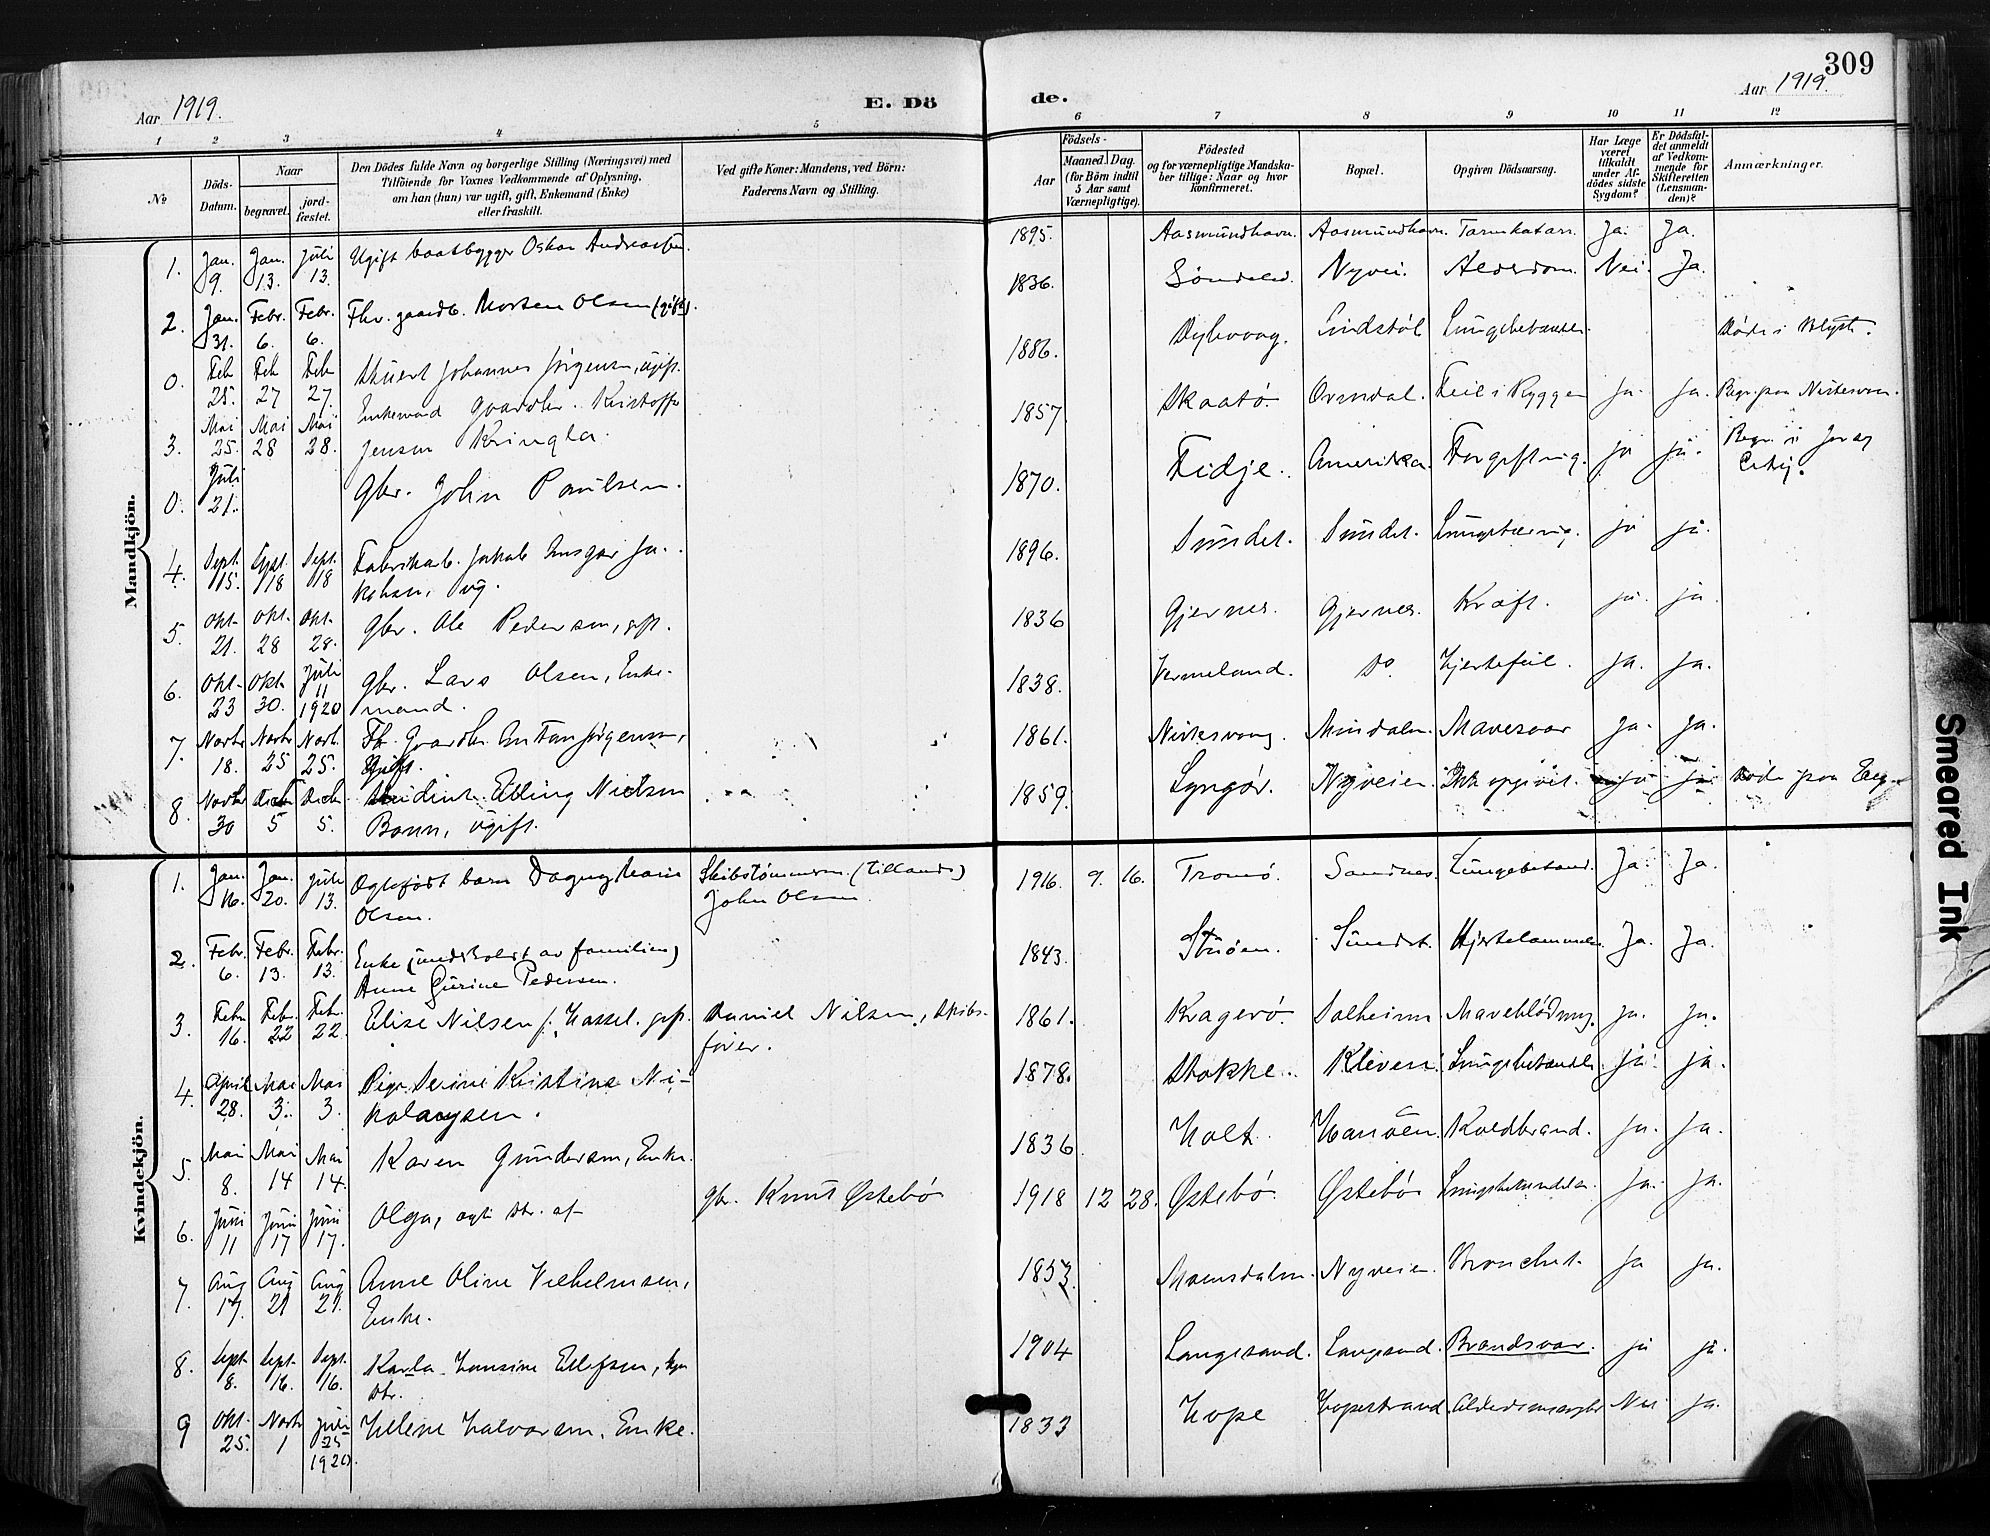 309
Aar 1919.
E. Dö
de.
Aar 1919.
1 2 3 4 5 6 7 8 9 10 11 12
№
Döds-Datum.
Naar
begravet.
jord-fæstet.
Den Dödes fulde Navn og borgerlige Stilling (Næringsvei) med
Tilföiende for Voxnes Vedkommende af Oplysning,
om han (hun) var ugift, gift, Enkemand (Enke)
eller fraskilt.
Ved gifte Koner: Mandens, ved Börn:
Faderens Navn og Stilling.
Födsels-
Aar
Maaned Dag
(for Börn indtil
5 Aar samt
Værnepligtige).
Födested
og for værnepligtige Mandska-
ber tillige: Naar og hvor
konfirmeret.
Bopæl.
Opgiven Dödsaarsag.
Har Læge
været
tilkaldt
under Af-
dödes sidste
Sygdom?
Er Dödsfal-
det anmeldt
af Vedkom-
mende for
Skifteretten
(Lensman-
den)?
Anmærkninger.
Mandkjön.
1. Jan. 9. Jan. 13. Juli 13. Ugift baatbygger Oskar Andreassen 1895. Aasmundhavn. Aasmundhavn. Tarmkatarr. Ja. Ja.
2. Jan. 31. Febr. 6. Febr. 6. Fhv. gaardb. Morten Olsen (gift). 1836. Söndeled. Nyvei. Alderdom. Nei. Ja.
0. Feb 25. Feb 27 Feb 27. Johannes Jörgensen, ugift. 1886. Dybvaag. Lindstöl
3. Mai 25. Mai 28 Mai 28. Enkemand Gaardbr. Kristoffer
Jensen Kringla. 1857 Skaatö. Feil i Ryggen ja. ja.
0. Juli 21. Gbr. John Paulsen. 1870. Fidje. Amerika. Forgiftnig. ja ja.
4. Sept. 15. Sept. 18 Sept. 18 Fabrikarb. Jakob Ansgar Ja-
kobsen, ug. 1896. Sundet. Sundet. ja ja.
5. Okt. 21. Okt. 28 Okt. 28. Gbr. Ole Pedersen, gft. 1836 Gjernes. Gjernes. Kræft. ja. ja.
6. Okt. 23 Okt. 30. Juli 11 1920 Gbr. Lars Olsen, Enke-
mand. 1838. Vermeland. Do. Hjertefeil. ja. ja.
7. Novbr 18. Novbr 25 Novb. 25. Fh. Gaardbr. Jörgensen,
Gift. 1861. Mindalen. Mavesaar ja. ja.
8. Novbr 30 Decbr 5 Decbr. 5. Elling Nielsen
Bonn, ugift. 1859. Lyngör. Nyveien. Ikke opgivet. ja ja
Kvindekjön.
1. Jan. 16. Jan. 20. Juli 13. Ægtefödt barn Dagny Marie
Olsen. Skibstömmerm. (tillands)
John Olsen. 1916. 9. 16. Tromö. Sandnes. Lungebetænd. Ja. Ja.
2. Febr. 6. Febr. 13. Febr. 13. Enke (underholdt av familien)
Anne Gurine Pedersen. 1843. Stuöen. Sundet. Hjertelammelse. Ja. Ja.
3. Febr. 16. Febr. 22 Febr. 22. Elise Nilsen f. Hassel. gft. Daniel Nilsen, Skibs-
förer. 1861. Kragerö. Solheim Maveblödning. ja. ja.
4. April 28. Mai 3. Mai 3. Pige Serine Kristine Ni-
kolaysen. 1878. Stokke. Kleven. ja. ja.
5. Mai 8. Mai 14 Mai 14. Karen Gundersen, Enke. 1836 Holt. Hanöen. Koldbrand. ja. ja.
6. Juni 11 Juni 17 Juni 17. Olga, ægte Dtr. af gbr. Knut Östebö 1918 12 28. Östebö Östebö ja. ja.
7. Aug 17. Aug 21 Aug 21. Anne Oline Vilhelmsen,
Enke. 1853. Nyveien. Bronchit. ja ja.
8. Sept. 8. Sept. 16. Sept. 16. Karla Hansine Ellefsen,
Dtr. 1904 Langesand. Langesand. Brandsaar. ja ja.
9 Okt. 25. Novbr 1 Juli 25 1920. Helene Halvorsen, Enke. 1833 Hope Hopestrand. Nei ja.
Smeared Ink